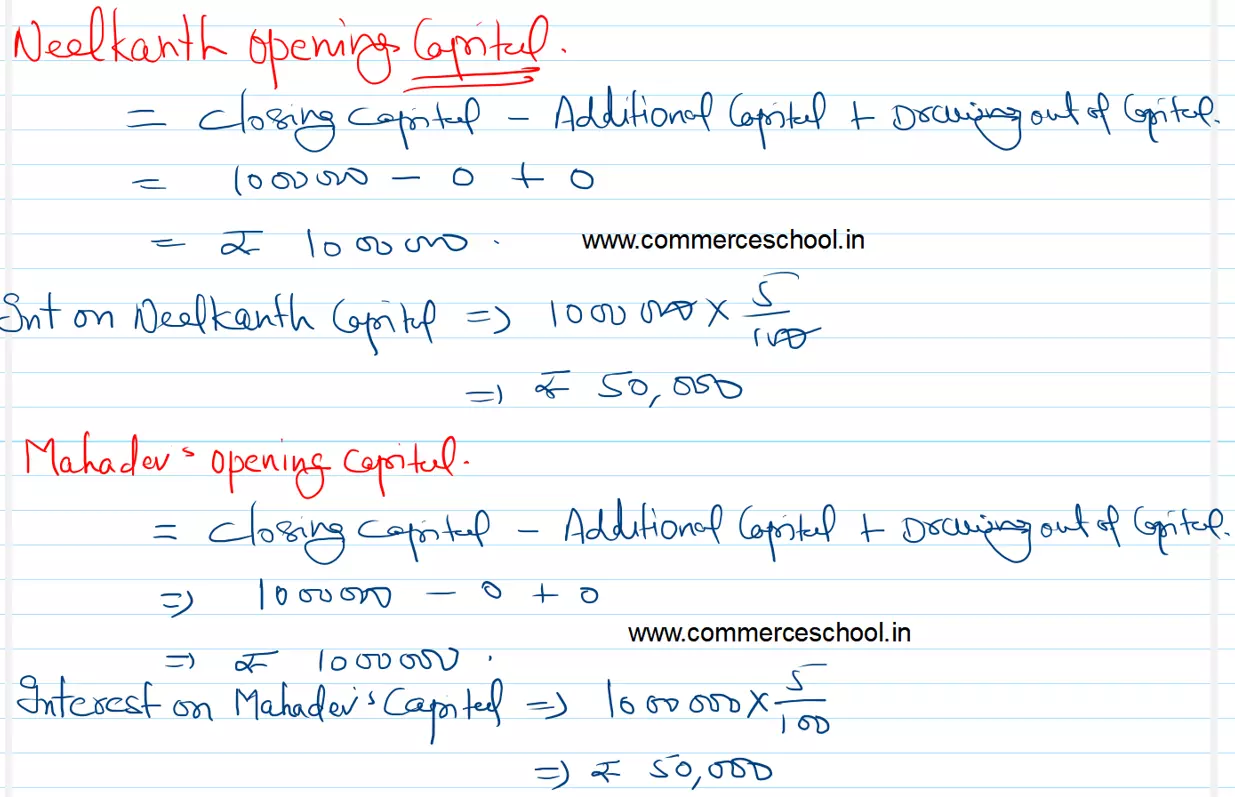 Neelkanth opening Capital.
= Closing Capital - Additional Capital + Drawing out of Capital.
= 1000000 - 0 + 0
= ₹ 1000000.
www.commerceschool.in
Int on Neelkanth Capital => 1000000 × 5/100
=> ₹ 50,000
Mahadev's opening Capital.
= Closing Capital - Additional Capital + Drawing out of Capital.
=> 1000000 - 0 + 0
www.commerceschool.in
=> ₹ 1000000.
Interest on Mahadev's Capital => 1000000 × 5/100
=> ₹ 50,000